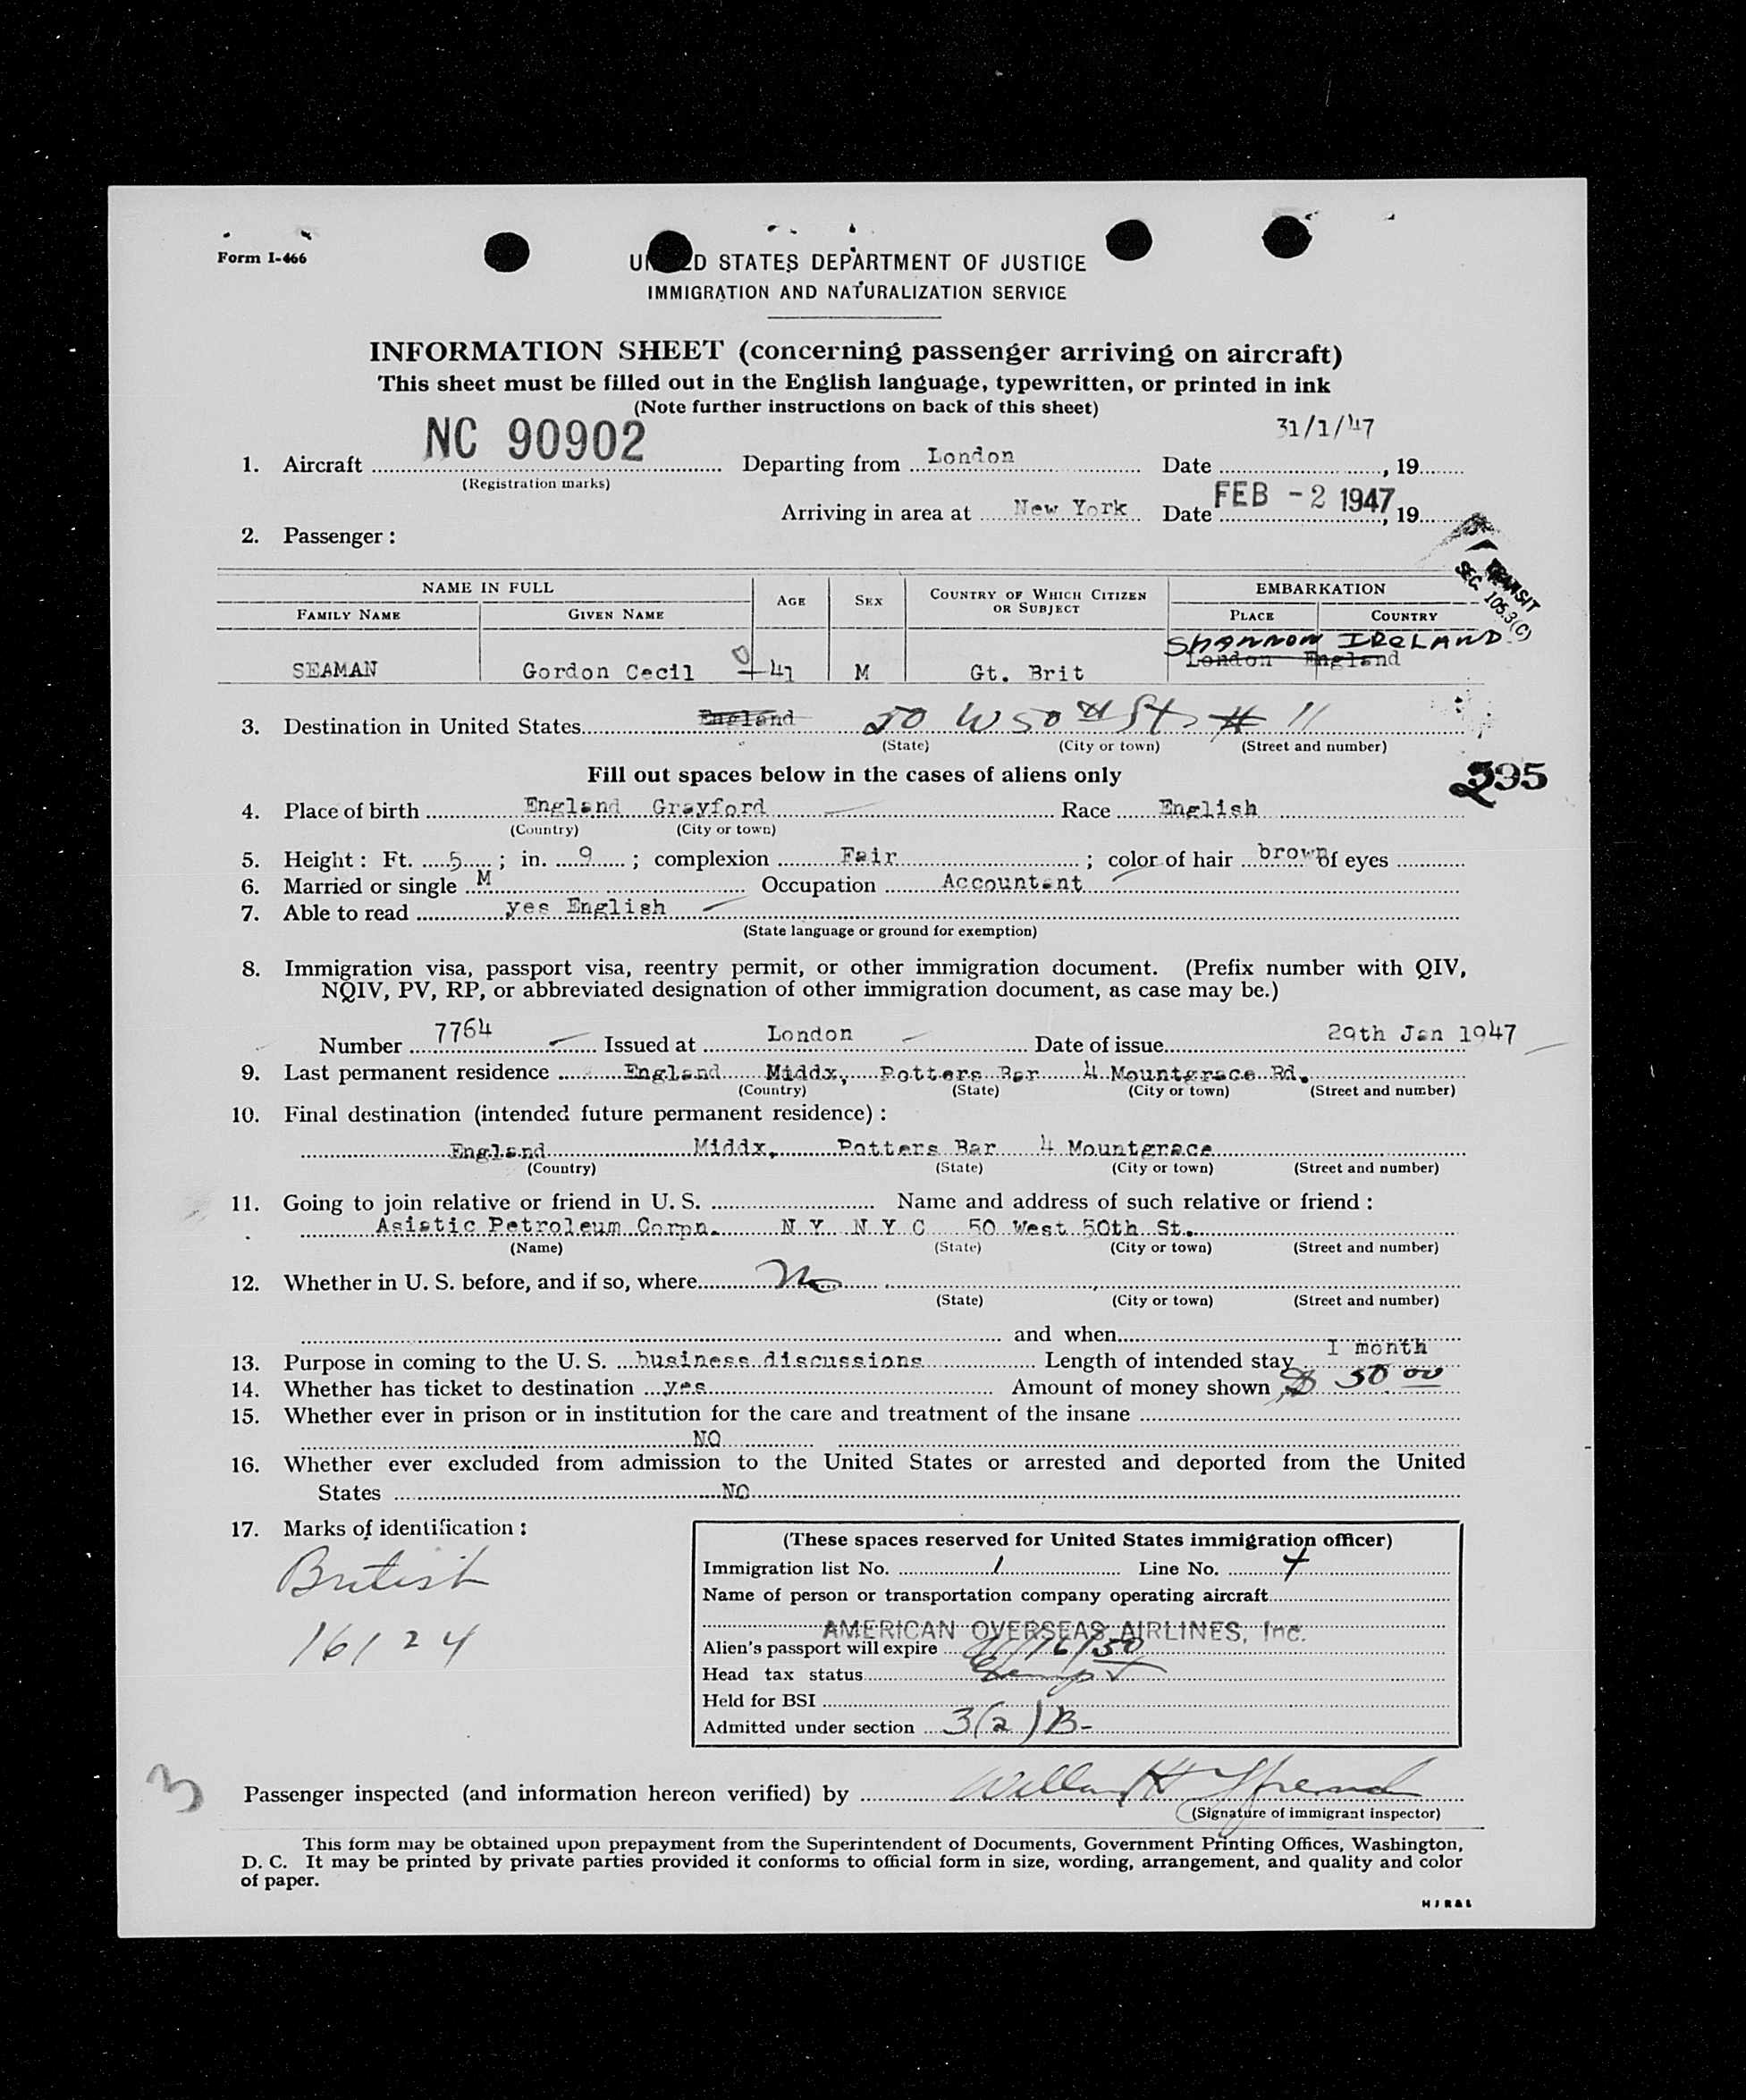 Form I-466
UNITED STATES DEPARTMENT OF JUSTICE
IMMIGRATION AND NATURALIZATION SERVICE
INFORMATION SHEET (concerning passenger arriving on aircraft)
This sheet must be filled out in the English language, typewritten, or printed in ink
(Note further instructions on back of this sheet)
31/1/47
1. Aircraft NC 90902 Departing from London Date , 19
(Registration marks)
Arriving in area at New York Date FEB -2 1947, 19
2. Passenger :
TRANSIT
SEC. 105.3(C)
NAME IN FULL AGE SEX COUNTRY OF WHICH CITIZEN OR SUBJECT EMBARKATION
FAMILY NAME GIVEN NAME PLACE COUNTRY
SHANNON IRELAND
SEAMAN Gordon Cecil 41 M Gt. Brit London England
3. Destination in United States England 50 W 50th St # 11
(State) (City or town) (Street and number)
Fill out spaces below in the cases of aliens only
395
4. Place of birth England Grayford Race English
(Country) (City or town)
5. Height : Ft. 5 ; in. 9 ; complexion Fair ; color of hair brown of eyes
6. Married or single M Occupation Accountant
7. Able to read yes English
(State language or ground for exemption)
8. Immigration visa, passport visa, reentry permit, or other immigration document. (Prefix number with QIV,
NQIV, PV, RP, or abbreviated designation of other immigration document, as case may be.)
Number 7764 Issued at London Date of issue 29th Jan 1947
9. Last permanent residence England Middx, Potters Bar 4 Mountgrace Rd.
(Country) (State) (City or town) (Street and number)
10. Final destination (intended future permanent residence) :
England Middx, Potters Bar 4 Mountgrace
(Country) (State) (City or town) (Street and number)
11. Going to join relative or friend in U. S. Name and address of such relative or friend :
Asiatic Petroleum Corpn. N Y N Y C 50 West 50th St.
(Name) (State) (City or town) (Street and number)
12. Whether in U. S. before, and if so, where No
(State) (City or town) (Street and number)
and when
13. Purpose in coming to the U. S. business discussions Length of intended stay I month
14. Whether has ticket to destination yes Amount of money shown $ 50 00
15. Whether ever in prison or in institution for the care and treatment of the insane
NO
16. Whether ever excluded from admission to the United States or arrested and deported from the United
States NO
17. Marks of identification :
British
16124
(These spaces reserved for United States immigration officer)
Immigration list No. 1 Line No. 4
Name of person or transportation company operating aircraft
AMERICAN OVERSEAS AIRLINES, Inc.
Alien's passport will expire /16/50
Head tax status Exempt
Held for BSI
Admitted under section 3(2)B-
3
Passenger inspected (and information hereon verified) by
(Signature of immigrant inspector)
This form may be obtained upon prepayment from the Superintendent of Documents, Government Printing Offices, Washington,
D. C. It may be printed by private parties provided it conforms to official form in size, wording, arrangement, and quality and color
of paper.
HJR&L